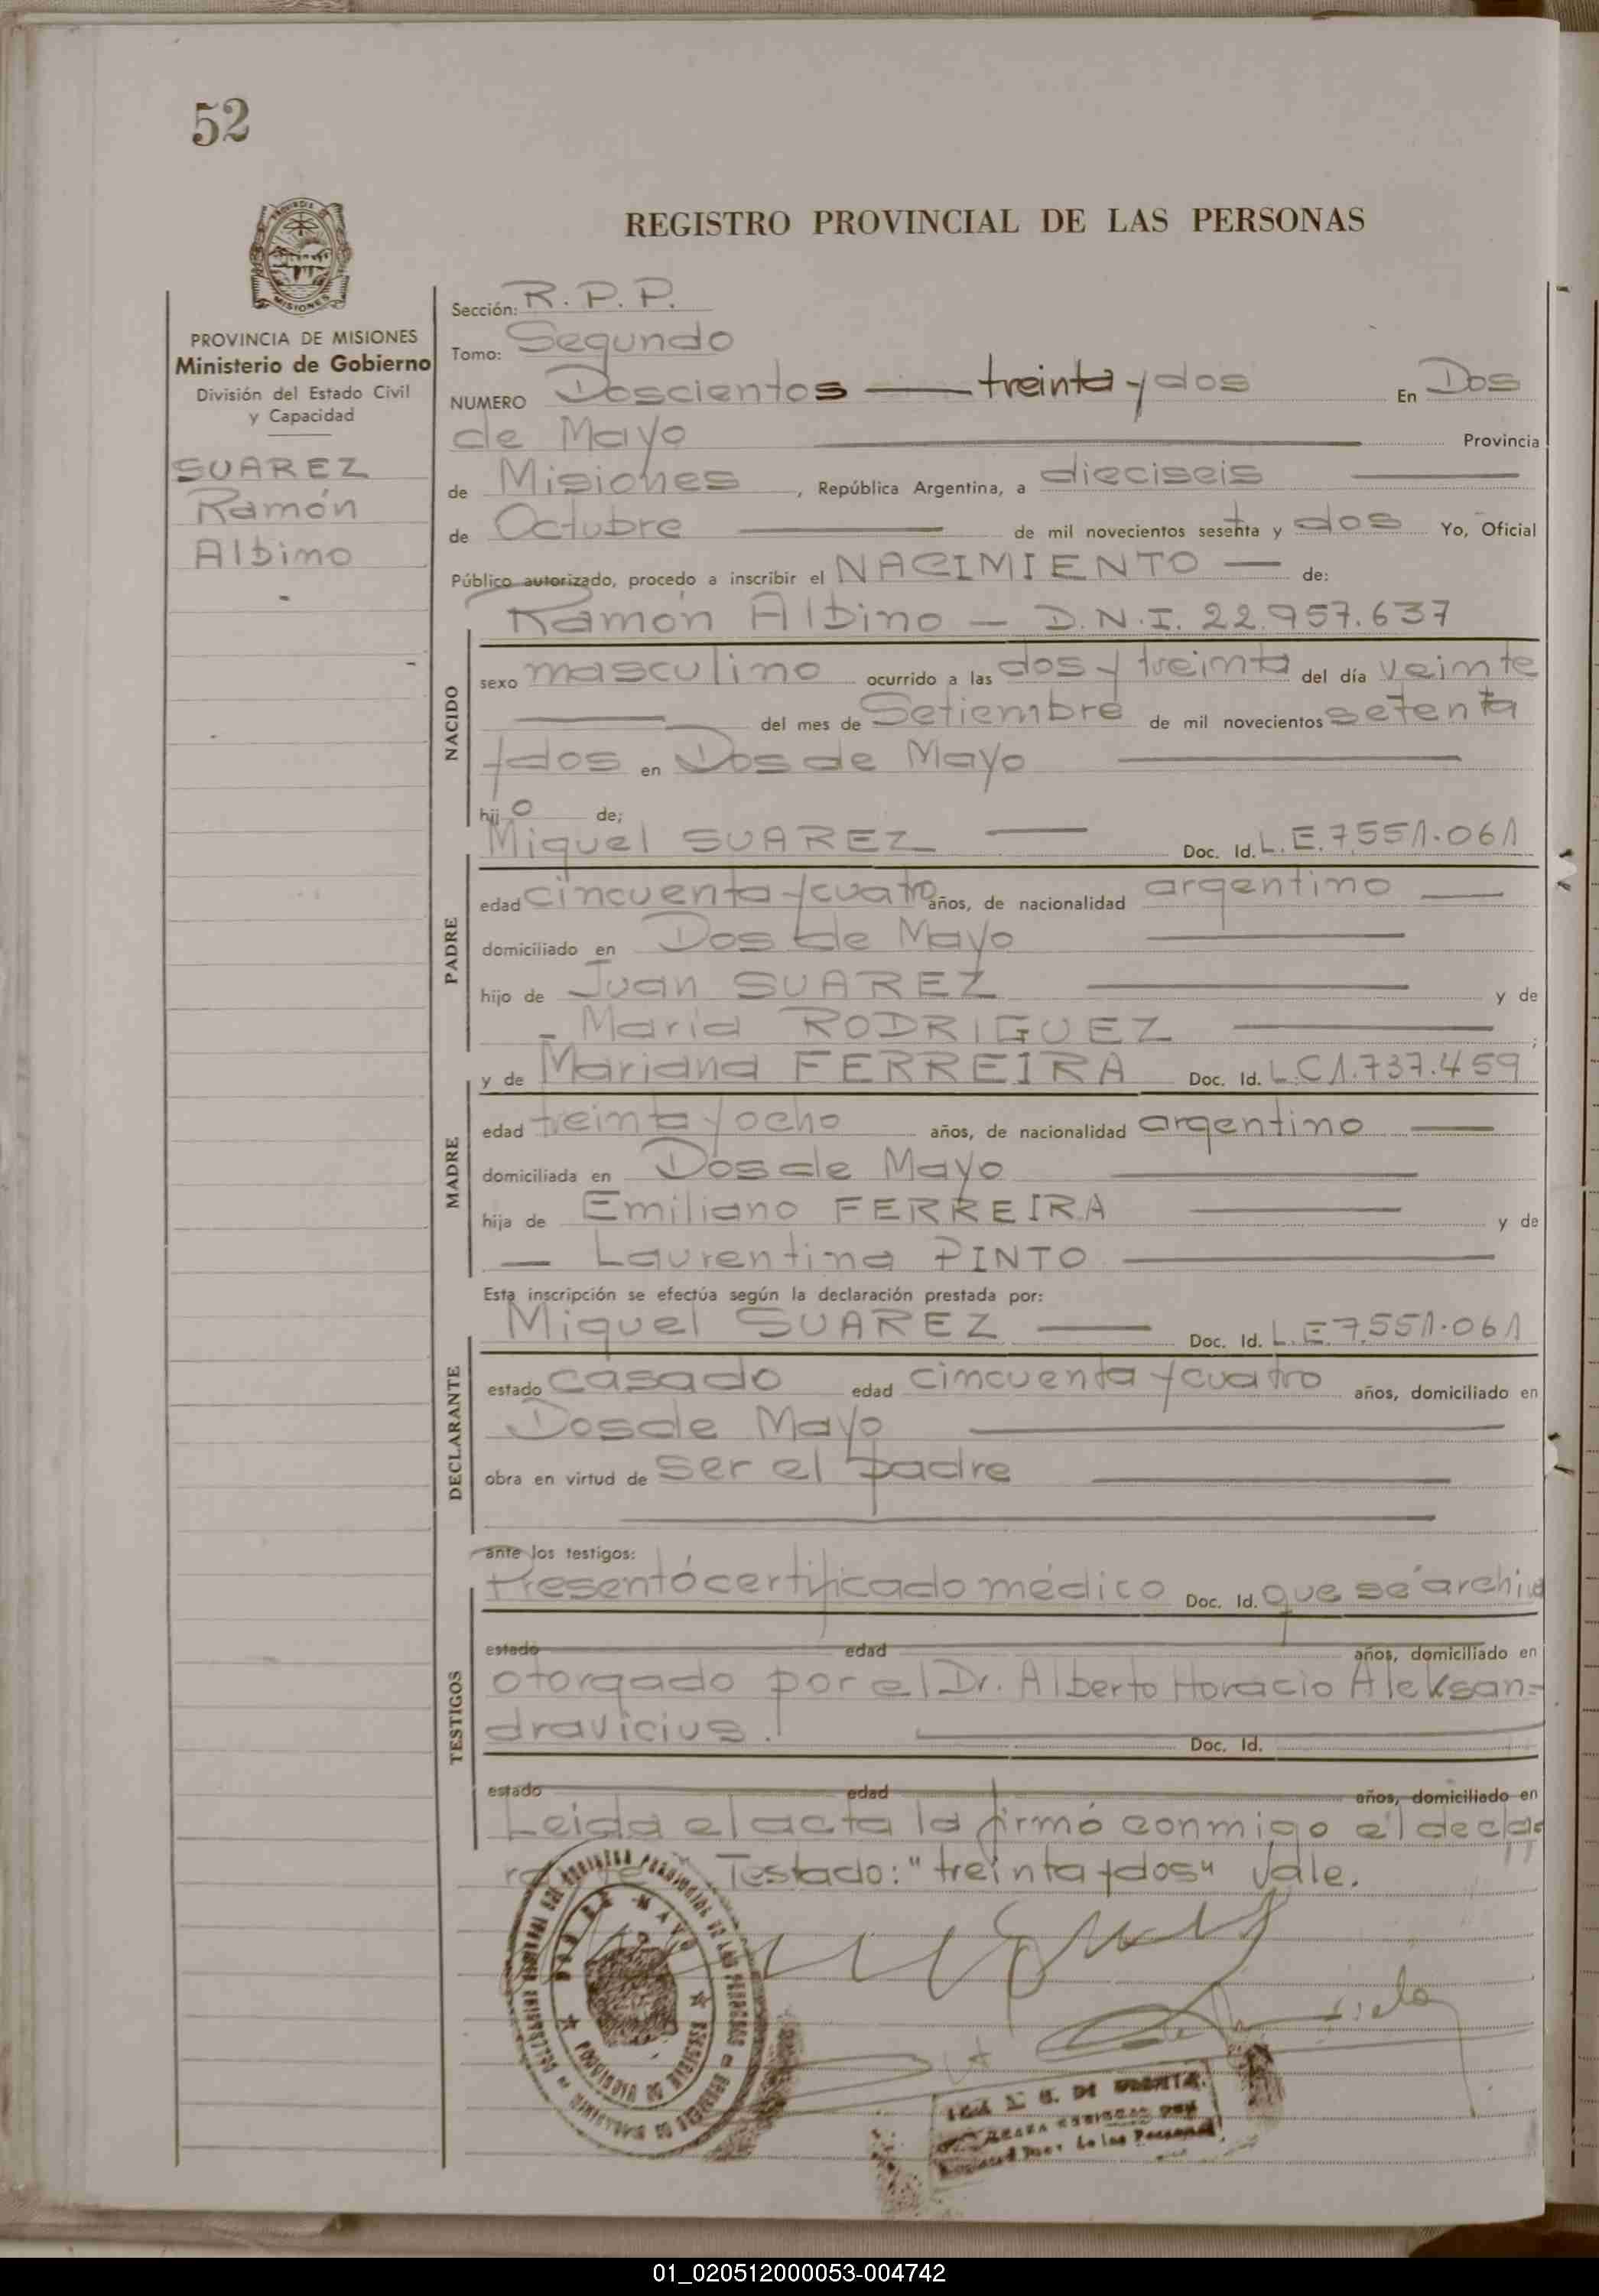 52
REGISTRO PROVINCIAL DE LAS PERSONAS
MISIONES
PROVINCIA DE MISIONES
Ministerio de Gobierno
División del Estado Civil
y Capacidad
SUAREZ
Ramón
Albino
Sección: R.P.P.
Tomo: Segundo
NUMERO Doscientos — treinta y dos En Dos
de Mayo Provincia
de Misiones, República Argentina, a dieciseis
de Octubre de mil novecientos sesenta y dos Yo, Oficial
Público autorizado, procedo a inscribir el NACIMIENTO — de:
Ramón Albino — D.N.I. 22.957.637
NACIDO
sexo masculino ocurrido a las dos y treinta del día veinte
del mes de Setiembre de mil novecientos setenta
y dos en Dos de Mayo
hijo de;
Miguel SUAREZ — Doc. Id. L.E. 7.551.061
PADRE
edad cincuenta y cuatro años, de nacionalidad argentino —
domiciliado en Dos de Mayo
hijo de Juan SUAREZ y de
— Maria RODRIGUEZ
y de Mariana FERREIRA Doc. Id. L.C 1.737.459
MADRE
edad treinta y ocho años, de nacionalidad argentino —
domiciliada en Dos de Mayo
hija de Emiliano FERREIRA y de
— Laurentina PINTO
Esta inscripción se efectúa según la declaración prestada por:
Miguel SUAREZ — Doc. Id. L.E. 7.551.061
DECLARANTE
estado casado edad cincuenta y cuatro años, domiciliado en
Dos de Mayo
obra en virtud de ser el padre
ante los testigos:
Presentó certificado médico Doc. Id. que se archiva
TESTIGOS
estado edad años, domiciliado en
otorgado por el Dr. Alberto Horacio Aleksan=
dravicius. Doc. Id.
estado edad años, domiciliado en
Leida el acta la firmó conmigo el decla
Testado: "treinta y dos" vale.
01_020512000053-004742